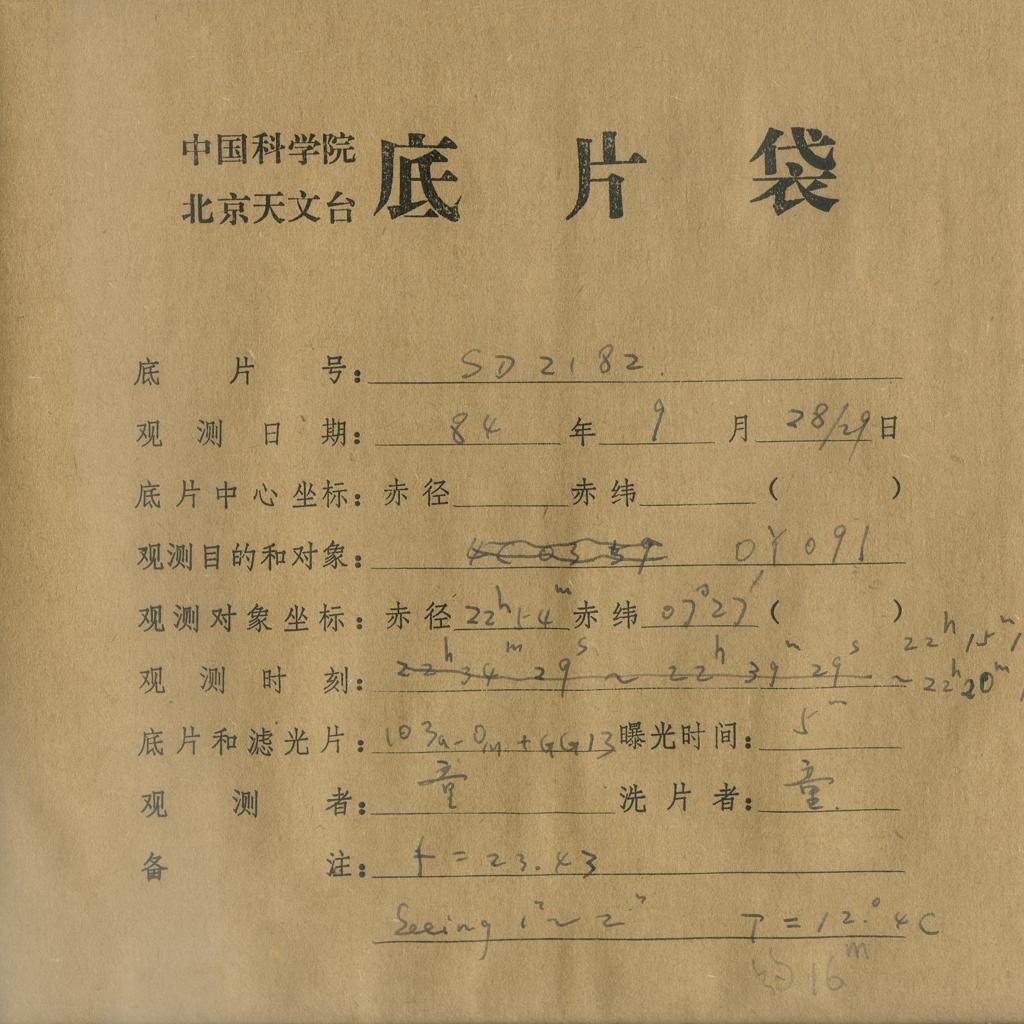 中国科学院
北京天文台
底片袋
底片号: SD2182.
观测日期: 84 年 9 月 28/29 日
底片中心坐标: 赤径 赤纬 ( )
观测目的和对象: 4C0359 OY091
观测对象坐标: 赤径 22h 54m 赤纬 07°27′ ( )
22h 15m
观测时刻: 22h 34m 29s ~ 22h 39m 29s ~ 22h 20m
底片和滤光片: 103a-O + GG13 曝光时间: 5m
观测者: 童 洗片者: 童.
备注: f = 23.43
Seeing 1″ ~ 2″ T = 12.°4C
约 16m